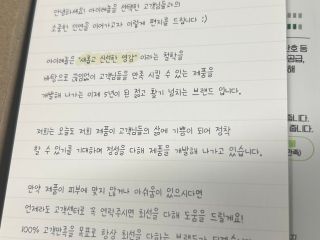 안녕하세요! 아이레놀을 선택한 고객님들과의
소중한 인연을 이어가고자 이렇게 편지를 드립니다 :)
"새롭고 신선한 영감" 이라는 철학을
바탕으로 끊임없이 고객님들을 만족 시킬 수 있는 제품을
개발해 나가는 이제 5년이 된 젊고 활기 넘치는 브랜드 입니다.
저희는 오늘도 저희 제품이 고객님들의 삶에 기쁨이 되어 정착
할 수 있기를 기대하며 정성을 다해 제품을 개발해 나가고 있습니다.
만약 제품이 피부에 맞지 않거나 아쉬움이 있으시다면
언제라도 고객센터로 꼭 연락주시면 최선을 다해 도움을 드릴게요!
100% 고객만족을 목표로 항상 최선을 다하는
호 등
공급,
해
줍니다.
줍니다.